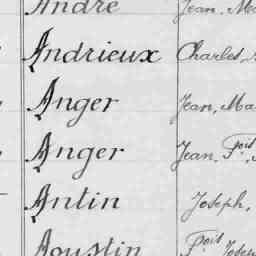 André Jean, Ma
Andrieux Charles,
Anger Jean, Ma
Anger Jean, Fçois,
Antin Joseph,
Aoustin Fçois Joseph